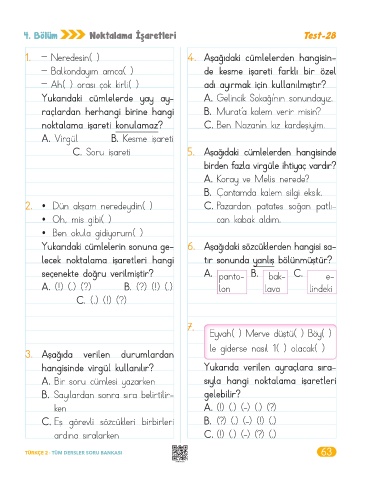 4. Bölüm
Noktalama İşaretleri
Test-28
1. – Neredesin( )
– Balkondayım amca( )
– Ah( ) orası çok kirli( )
Yukarıdaki cümlelerde yay ay-
raçlardan herhangi birine hangi
noktalama işareti konulamaz?
A. Virgül B. Kesme işareti
C. Soru işareti
2. • Dün akşam neredeydin( )
• Oh, mis gibi( )
• Ben okula gidiyorum( )
Yukarıdaki cümlelerin sonuna ge-
lecek noktalama işaretleri hangi
seçenekte doğru verilmiştir?
A. (!) (.) (?) B. (?) (!) (.)
C. (.) (!) (?)
3. Aşağıda verilen durumlardan
hangisinde virgül kullanılır?
A. Bir soru cümlesi yazarken
B. Sayılardan sonra sıra belirtilir-
ken
C. Eş görevli sözcükleri birbirleri
ardına sıralarken
4. Aşağıdaki cümlelerden hangisin-
de kesme işareti farklı bir özel
adı ayırmak için kullanılmıştır?
A. Gelincik Sokağı'nın sonundayız.
B. Murat'a kalem verir misin?
C. Ben Nazan'ın kız kardeşiyim.
5. Aşağıdaki cümlelerden hangisinde
birden fazla virgüle ihtiyaç vardır?
A. Koray ve Melis nerede?
B. Çantamda kalem silgi eksik.
C. Pazardan patates soğan patlı-
can kabak aldım.
6. Aşağıdaki sözcüklerden hangisi sa-
tır sonunda yanlış bölünmüştür?
A. panto-
lon
B. bak-
lava
C. e-
lindeki
7.
Eyvah( ) Merve düştü( ) Böy( )
le giderse nasıl 1( ) olacak( )
Yukarıda verilen ayraçlara sıra-
sıyla hangi noktalama işaretleri
gelebilir?
A. (!) (.) (-) (.) (?)
B. (?) (.) (-) (!) (.)
C. (!) (.) (-) (?) (.)
TÜRKÇE 2 TÜM DERSLER SORU BANKASI
63